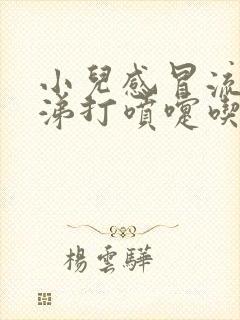 小兒感冒流
涕打噴嚏喫
楊雲驊